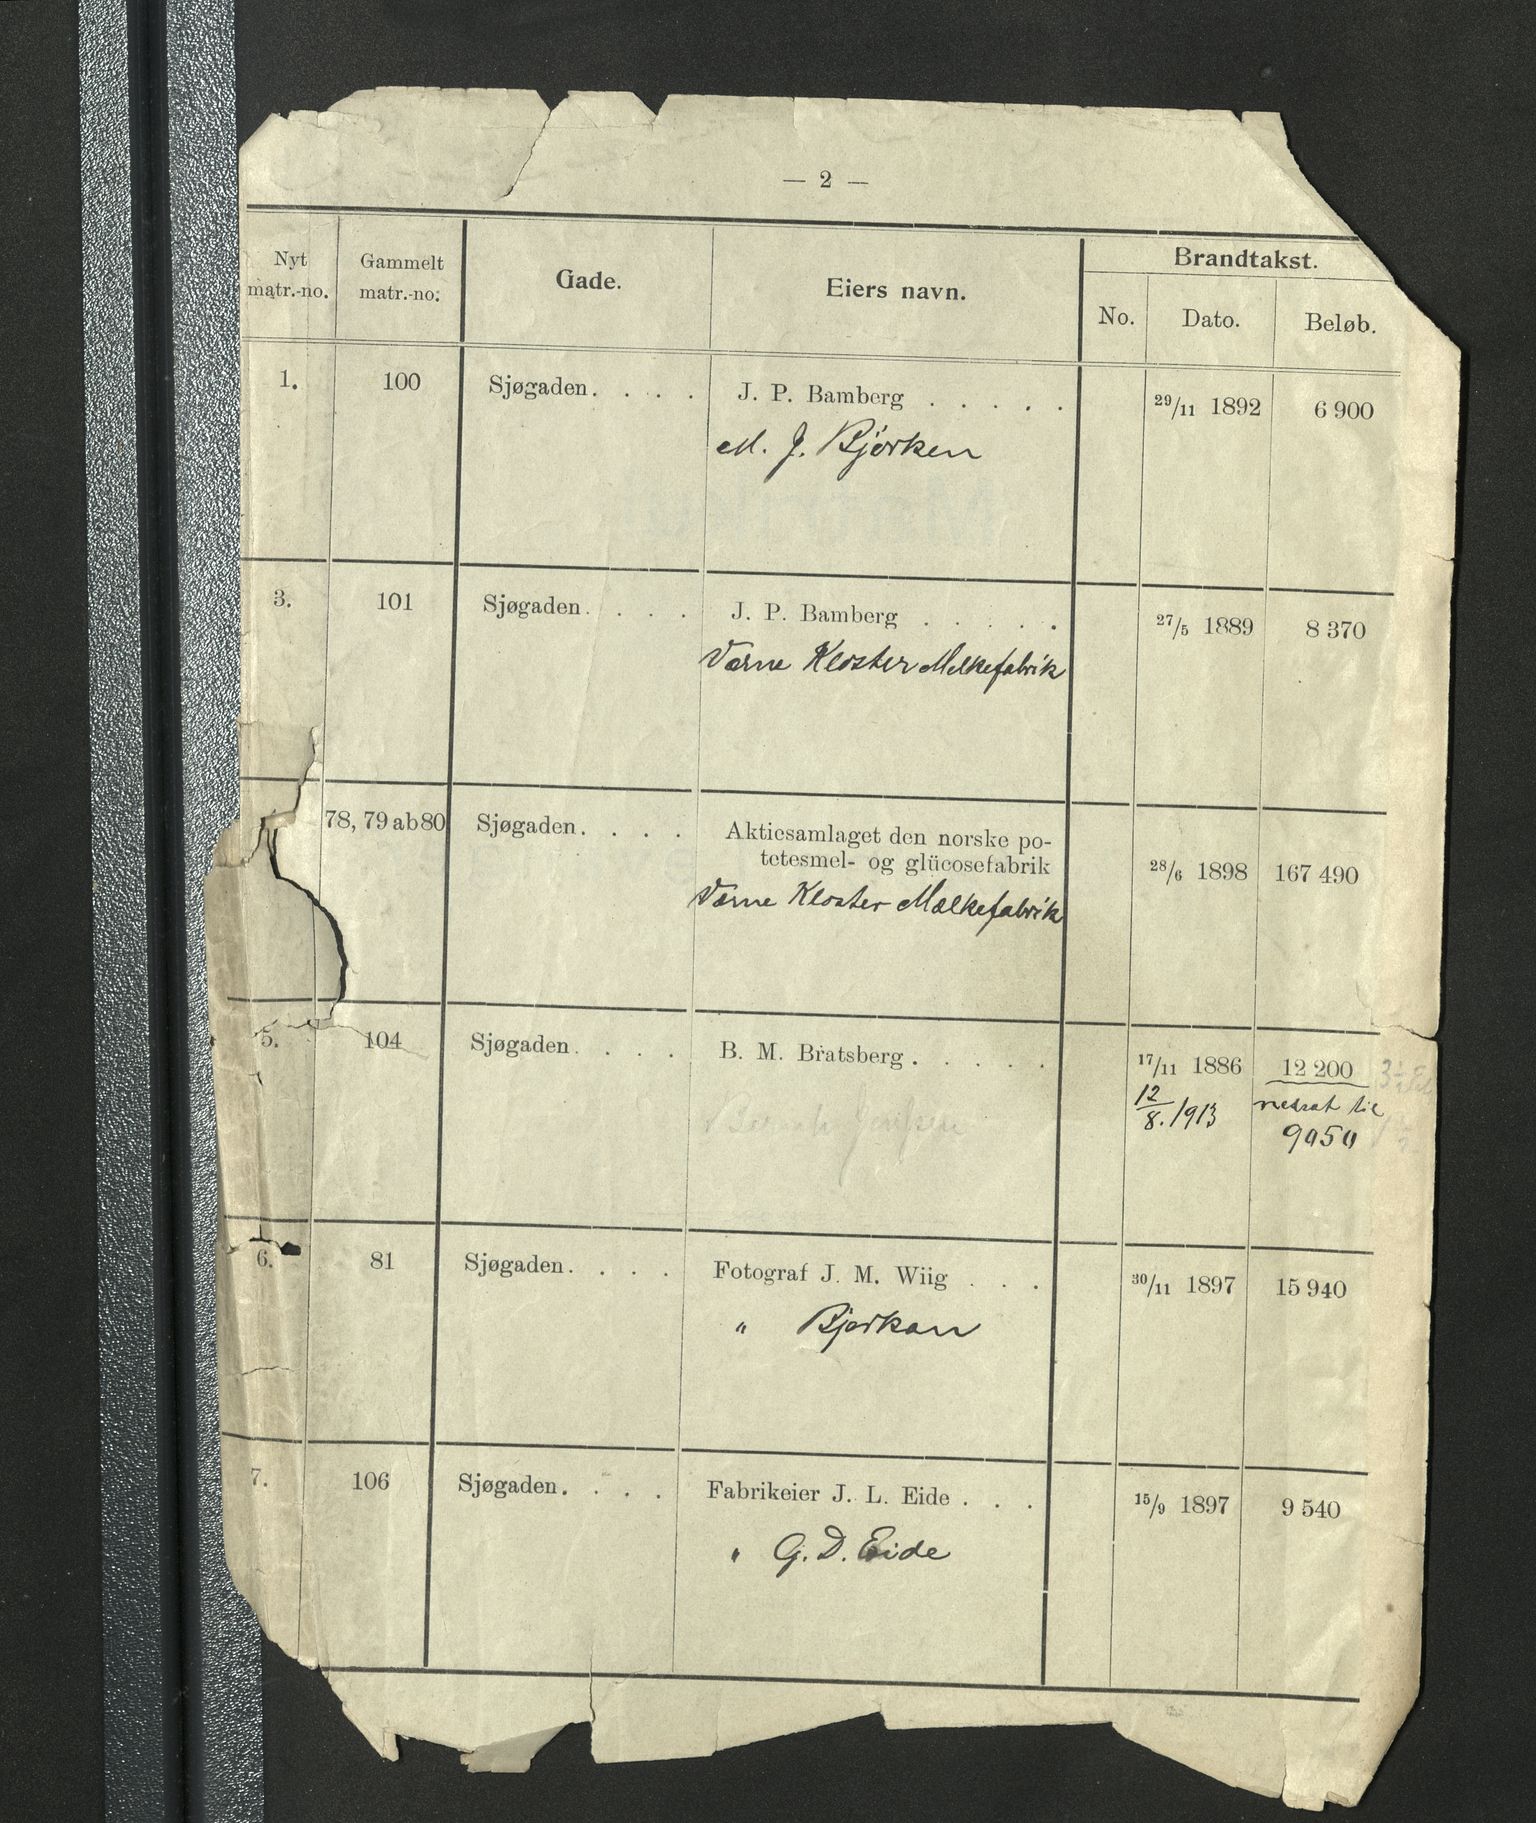 — 2 —
Nyt matr.-no. Gammelt matr.-no. Gade. Eiers navn. Brandtakst.
No. Dato. Beløb.
1. 100 Sjøgaden. . . . J. P. Bamberg . . . . . 29/11 1892 6 900
M. J. Bjørken
3. 101 Sjøgaden. . . . J. P. Bamberg . . . . . 27/5 1889 8 370
Værne Kloster Melkefabrik
78, 79 ab 80 Sjøgaden. . . . Aktiesamlaget den norske po-
tetesmel- og glücosefabrik 28/6 1898 167 490
Værne Kloster Mælkefabrik
5. 104 Sjøgaden. . . . B. M. Bratsberg. . . . . 17/11 1886 12 200
12/8. 1913 nedsat til
9050
6. 81 Sjøgaden. . . . Fotograf J. M. Wiig . . . 30/11 1897 15 940
" Bjørkan
7. 106 Sjøgaden. . . . Fabrikeier J. L. Eide . . . 15/9 1897 9 540
" G. D. Eide